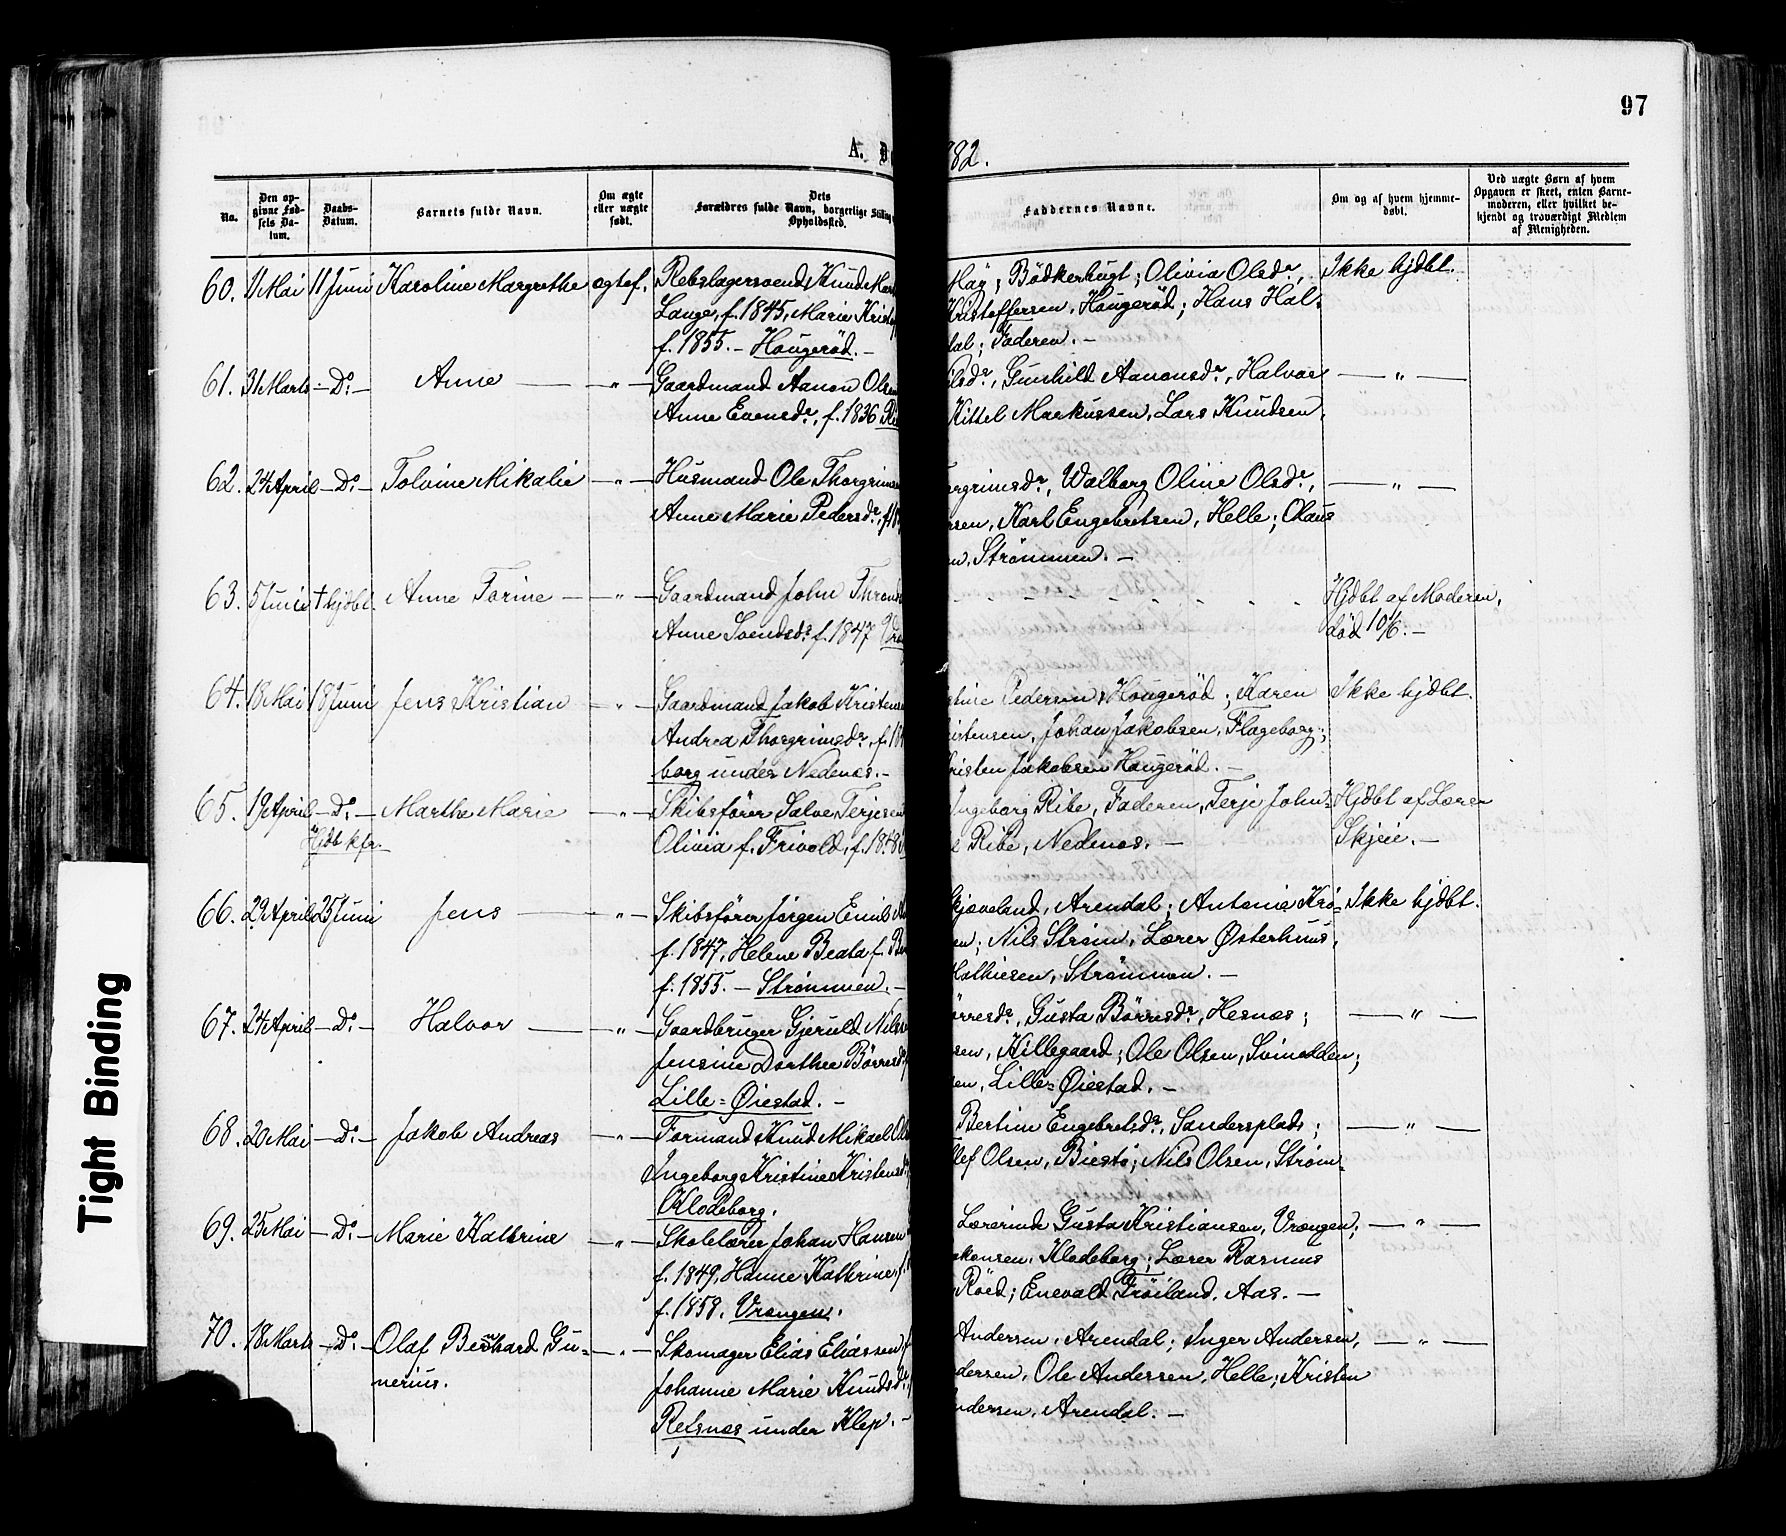 97
A. D
82.
No.
Den op-
givne Fød-
sels Da-
tum.
Daabs-
Datum.
Barnets fulde Navn.
Om ægte
eller uægte
født.
Dets
Forældres fulde Navn, borgerlige Stilling
Opholdssted.
Faddernes Navne.
Om og af hvem hjemme-
døbt.
Ved uægte Børn af hvem
Opgaven er skeet, enten Barne-
moderen, eller hvilket be-
kjendt og troværdigt Medlem
af Menigheden.
60. 11 Mai 11 Juni Karoline Margrethe ægtef. Rebslagersvend Knud Mart
Lange, f. 1845, Marie Kristof
f. 1855. – Hougerød. –
May; Bödkerbugt; Olivia Olsdr,
Kristoffersen, Hougeröd; Hans Hal-
dal; Faderen. –
Ikke hjdbt.
61. 31 Marts – Do. – Anne — – " – Gaardmand Aanon Olsen
Anne Evensdr., f. 1836
Olsdr, Gunhild Aanonsdr, Halvor
Kittel Markussen, Lars Knudsen,
— " —
62. 24 April – Do. – Tolvine Mikalie – " – Husmand Ole Thorgrimsen
Anne Marie Pedersdr, f. 18
orgrimsdr, Walborg Oline Olsdr,
rsen, Karl Engebretsen, Helle; Olaus
n, Strømmen. –
— " —
63. 5 Juni † hjdbt. Anne Torine – – " – Gaardmand John Thronds
Anne Svendsdr. f. 1847
" " " " " " "
Hjdbt af Moderen,
död 10/6. –
64. 18 Mai 18 Juni Jens Kristian – " – Gaardmand Jakob Kristens
Andrea Thorgrimsdr, f. 18
borg under Nedenæs. –
stine Pedersen, Hougeröd; Karen
istensen, Johan Jakobsen, Flageborg;
Kristen Jakobsen Hougeröd. –
Ikke hjdbt.
65. 19 April – Do. – Marthe Marie – " – Skibsfører Salve Terjesen
Hjdbt kfr.
Olivia f. Frivold, f. 1848
Ingeborg Ribe, Faderen, Terje John-
Ribe, Nedenæs. –
Hjdbt af Lærer
Skjeie. –
66. 29 April 25 Juni Jens — – " – Skibsfører Jørgen Emil
f. 1847, Helene Beata f.
f. 1855. – Strømmen. –
Skjæveland, Arendal; Antonie Krø-
en; Nils Strøm, Lærer Østerhuus,
Mathiesen, Strømmen. –
Ikke hjdbt.
67. 24 April – Do. – Halvor — – " – Gaardbruger Gjeruld Nils
Jensine Dorthea Børresdr
Lille-Øiestad. –
ørresdr, Gusta Börresdr, Hesnæs;
sen, Hillegaard; Ole Olsen, Svinodden;
en, Lille-Øiestad. –
— " —
68. 20 Mai – Do. – Jakob Andreas – " – Formand Knud Mikael Ols
Ingeborg Kristine Kristensdr
Klodeborg.
Bertine Engebretsdr, Sandersplads;
lef Olsen, Biestø; Nils Olsen, Strøm-
— " —
69. 25 Mai – Do. – Marie Kathrine – " – Skolelærer Johan Hansen
f. 1849, Hanne Kathrine, f.
f. 1858. Vrængen.
Lærerinde Gusta Kristiansen, Vrængen;
akensen, Klodeborg; Lærer Rasmus
Röed; Enevald Fröiland, Aas. –
— " —
70. 18 Marts – Do. – Olaf Bernhard Gu-
nerius.
– " – Skomager Elias Eliassen, f
Johanne Marie Knudsdr. f
Retsnæs under Klep. –
Andersen, Arendal; Inger Andersen,
ndersen, Ole Andersen, Helle; Kristen
ndersen, Arendal. –
— " —
Tight Binding